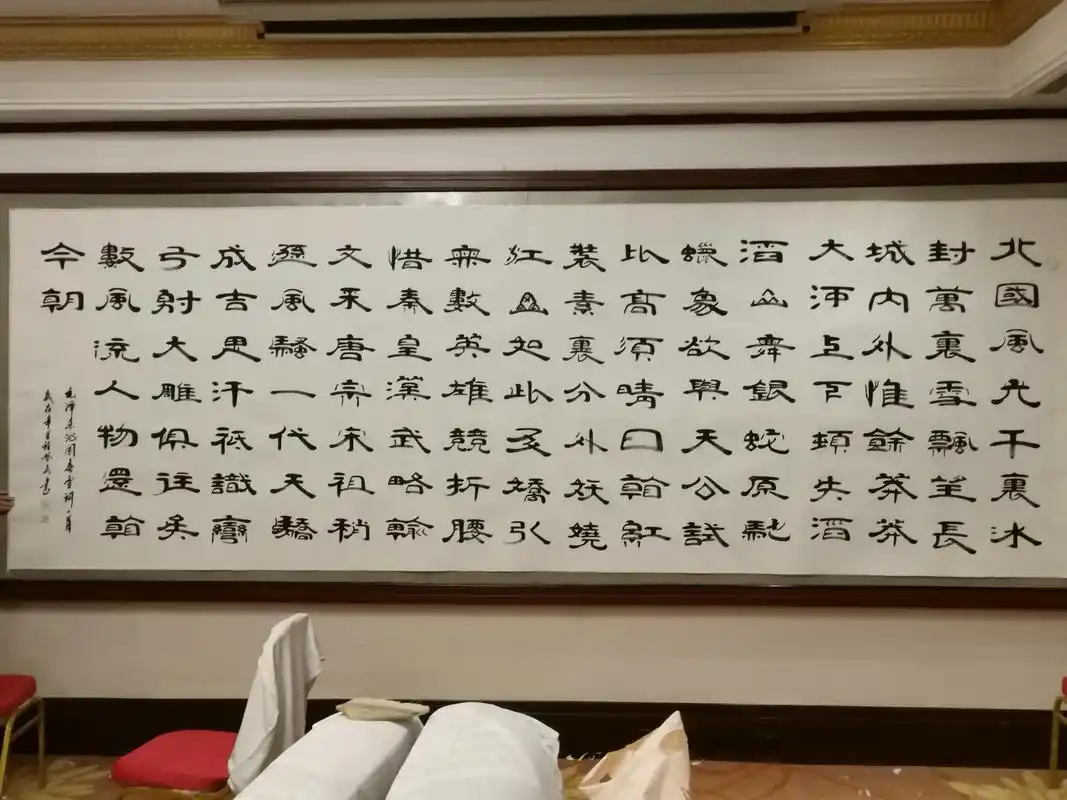 北國風光千裏冰
封萬裏雪飄望長
城內外惟餘莽莽
大河上下頓失滔
滔山舞銀蛇原馳
蠟象欲與天公試
比高須晴日看紅
裝素裹分外妖嬈
江山如此多嬌引
無數英雄競折腰
惜秦皇漢武略輸
文采唐宗宋祖稍
遜風騷一代天驕
成吉思汗祗識彎
弓射大雕俱往矣
數風流人物還看
今朝
毛澤東沁園春雪詞一首
歲在辛丑書